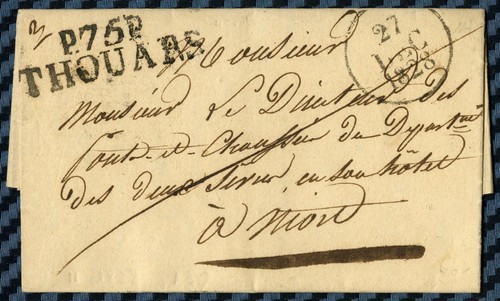 P.75.P
THOUARS
27
Monsieur
Monsieur Le Directeur des
Pont-et-Chaussée du Départ.
des deux Sèvres, en son hôtel
à Niort